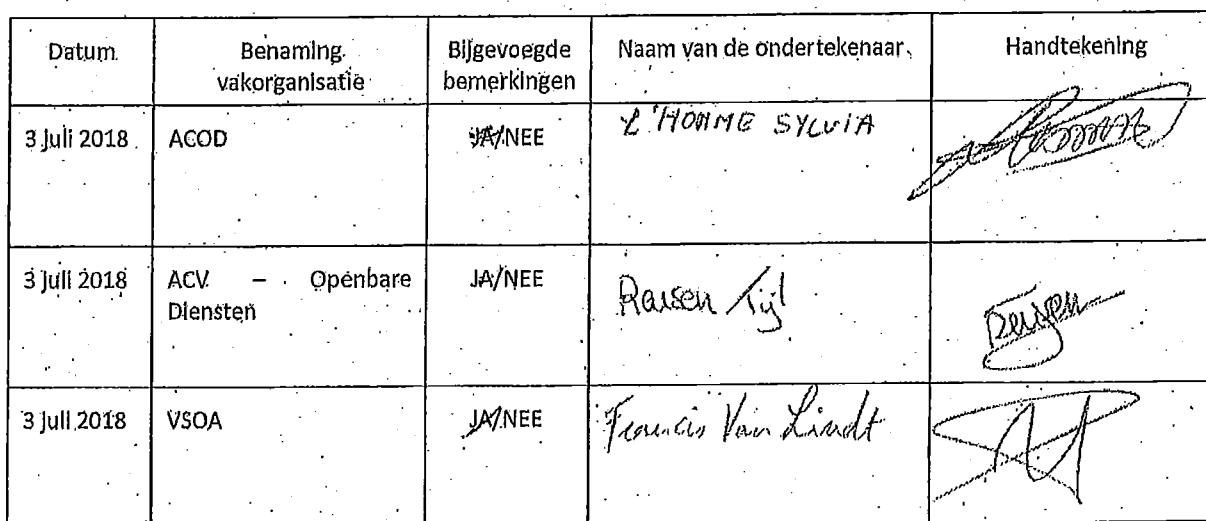 Datum
Benaming
vakorganisatie
Bijgevoegde
bemerkingen
Naam van de ondertekenaar
Handtekening
3 juli 2018
ACOD
JA/NEE
L'HOMME SYLVIA
3 juli 2018
ACV – Openbare
Diensten
JA/NEE
3 juli 2018
VSOA
JA/NEE
Francis Van Lindt